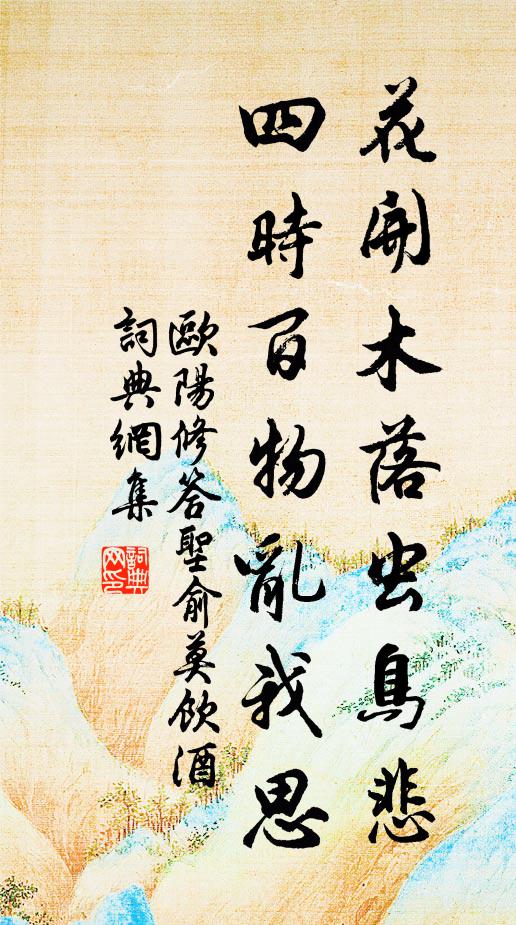 花開木落虫鳥悲
四時百物亂我思
歐陽修答聖俞莫飲酒
詞典網集
詞典网印